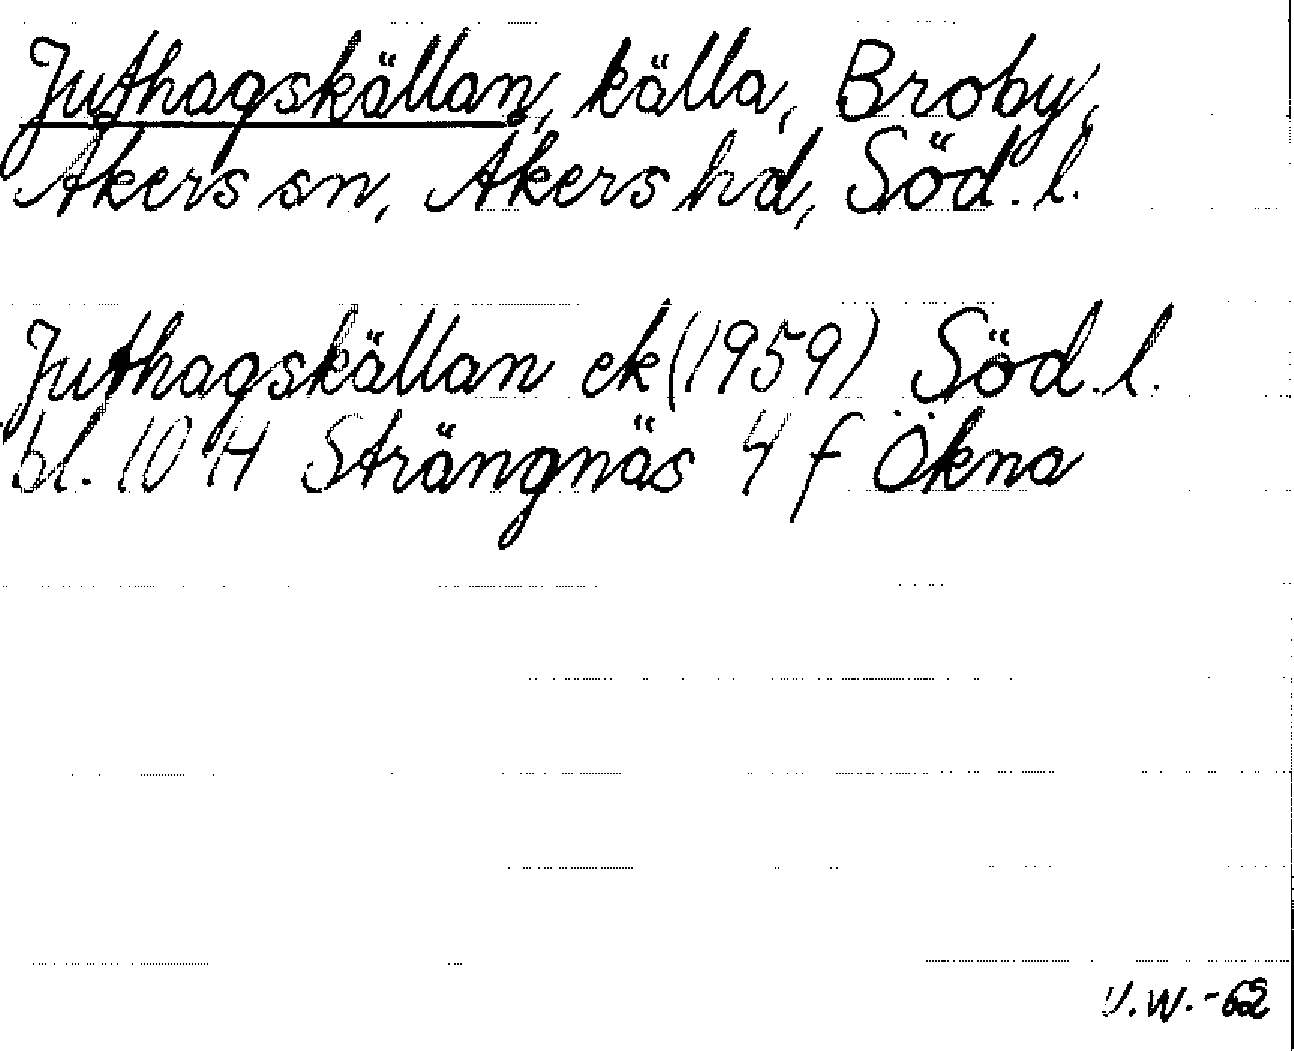 Juthagskällan, källa, Broby,
Åkers sn, Åkers hd, Söd. l.
Juthagskällan ek (1959) Söd. l.
bl. 10 H Strängnäs 4 f Ökna
V.W.-62